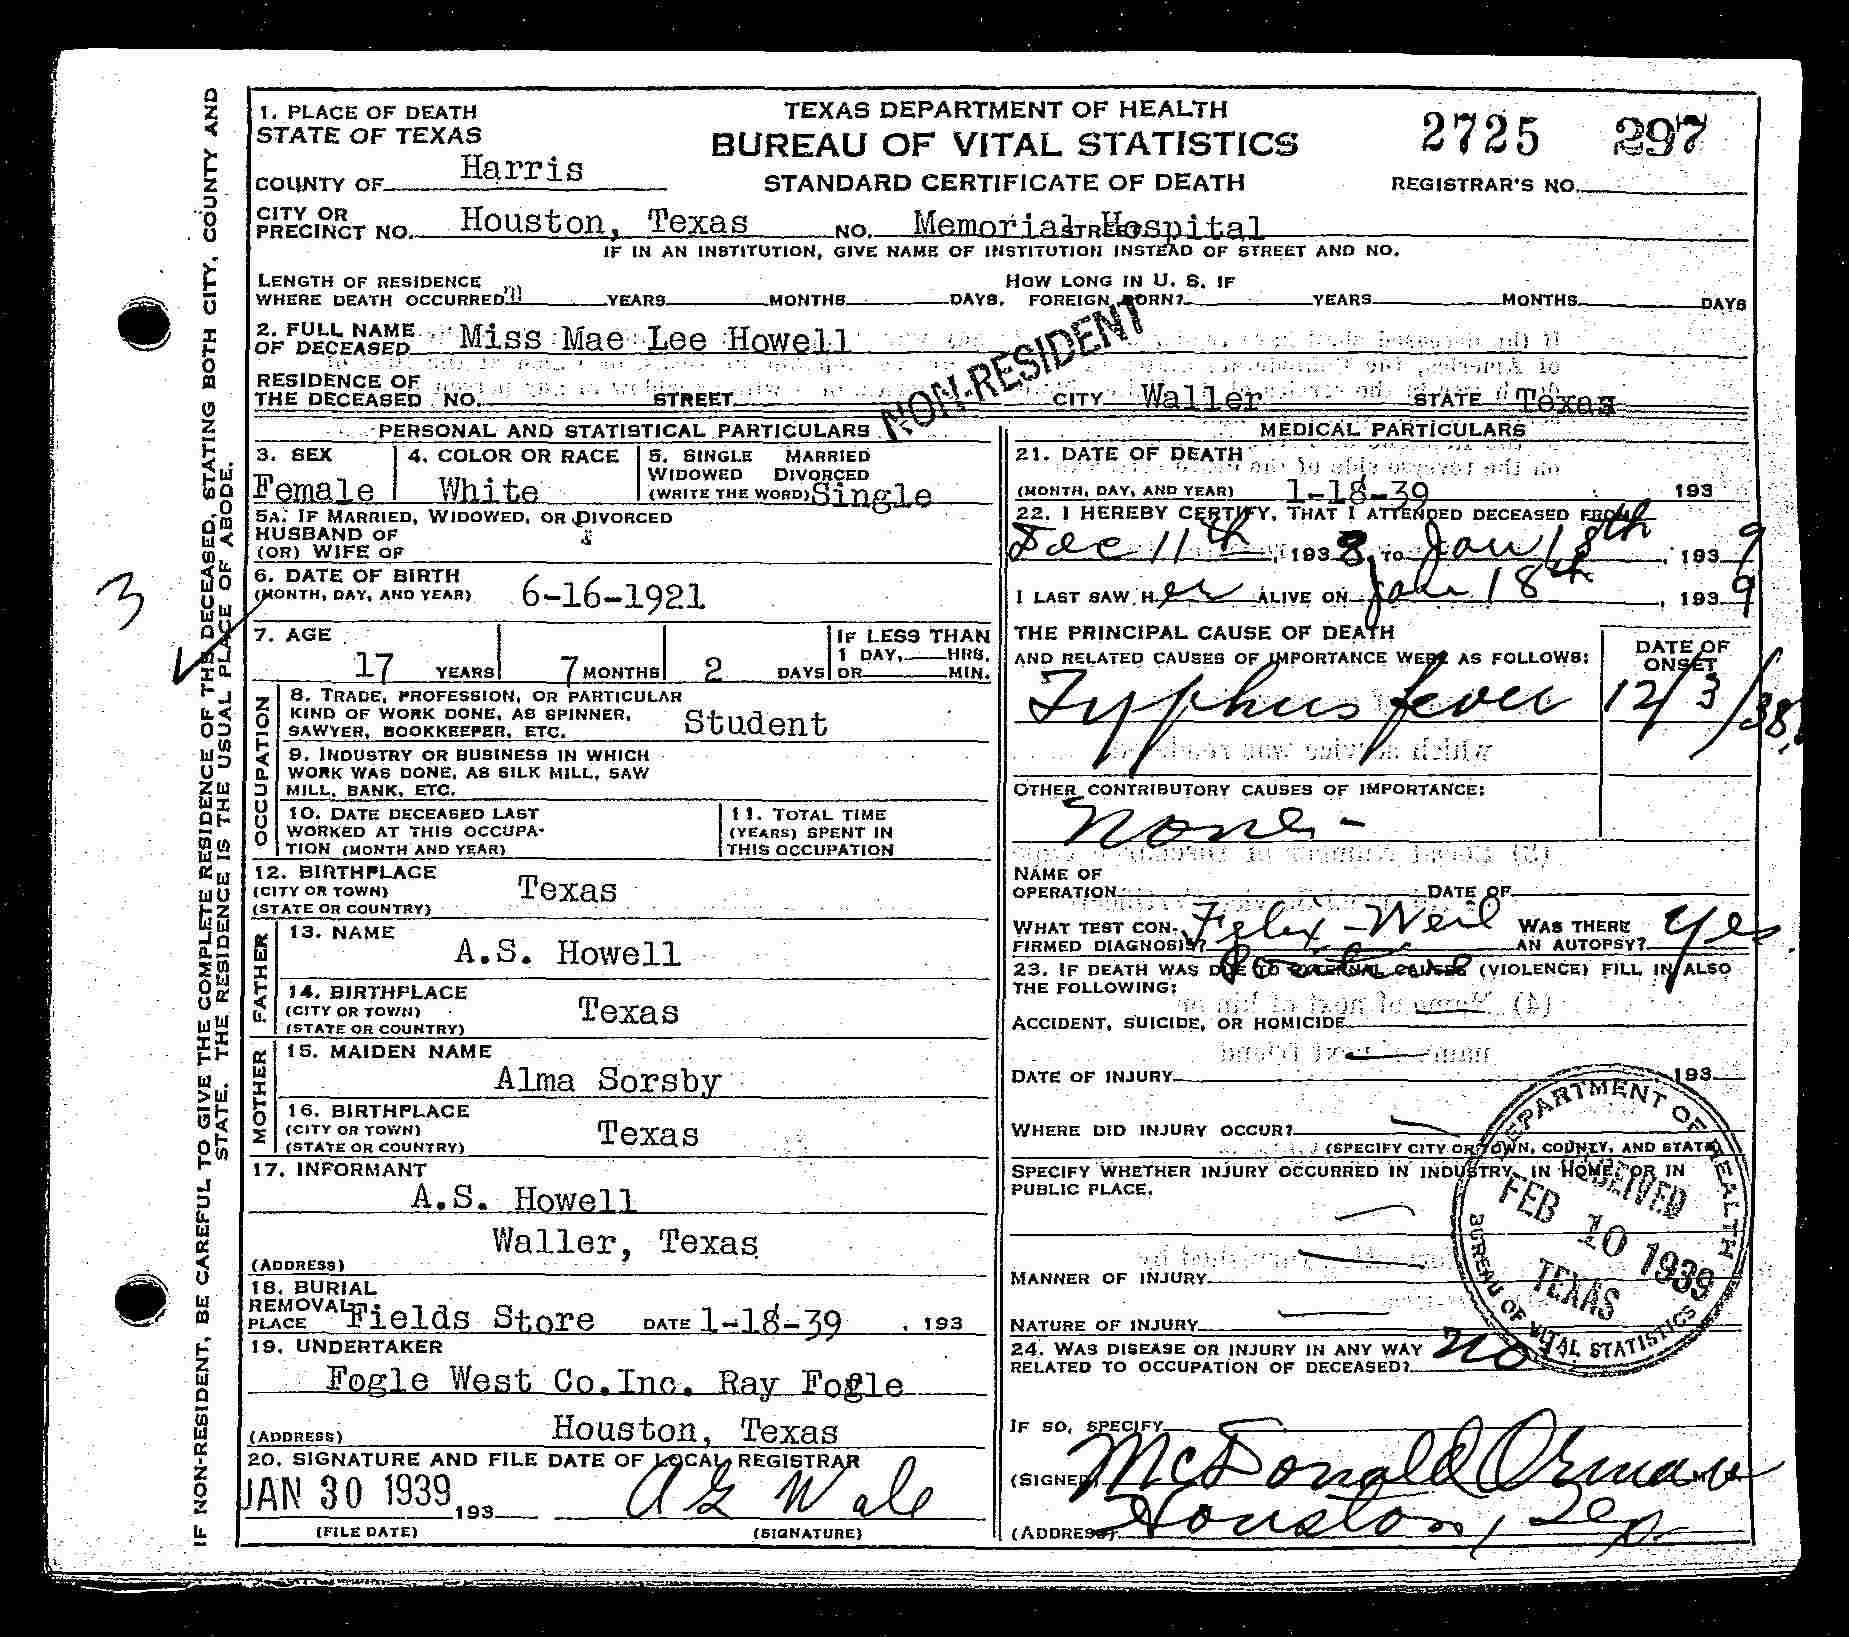 IF NON-RESIDENT, BE CAREFUL TO GIVE THE COMPLETE RESIDENCE OF THE DECEASED, STATING BOTH CITY, COUNTY AND
STATE. THE RESIDENCE IS THE USUAL PLACE OF ABODE.
3
1. PLACE OF DEATH
STATE OF TEXAS
COUNTY OF Harris
TEXAS DEPARTMENT OF HEALTH
BUREAU OF VITAL STATISTICS
STANDARD CERTIFICATE OF DEATH
2725 297
REGISTRAR'S NO.
CITY OR
PRECINCT NO. Houston, Texas NO. Memorial Hospital STREET
IF IN AN INSTITUTION, GIVE NAME OF INSTITUTION INSTEAD OF STREET AND NO.
LENGTH OF RESIDENCE
WHERE DEATH OCCURRED YEARS MONTHS DAYS.
HOW LONG IN U. S. IF
FOREIGN BORN? YEARS MONTHS DAYS
2. FULL NAME
OF DECEASED Miss Mae Lee Howell
NON-RESIDENT
RESIDENCE OF
THE DECEASED NO. STREET CITY Waller STATE Texas
PERSONAL AND STATISTICAL PARTICULARS
3. SEX
Female
4. COLOR OR RACE
White
5. SINGLE MARRIED
WIDOWED DIVORCED
(WRITE THE WORD) Single
5A. IF MARRIED, WIDOWED, OR DIVORCED
HUSBAND OF
(OR) WIFE OF
6. DATE OF BIRTH
(MONTH, DAY, AND YEAR) 6-16-1921
7. AGE
17 YEARS 7 MONTHS 2 DAYS
IF LESS THAN
1 DAY, HRS.
OR MIN.
OCCUPATION
8. TRADE, PROFESSION, OR PARTICULAR
KIND OF WORK DONE, AS SPINNER,
SAWYER, BOOKKEEPER, ETC. Student
9. INDUSTRY OR BUSINESS IN WHICH
WORK WAS DONE, AS SILK MILL, SAW
MILL, BANK, ETC.
10. DATE DECEASED LAST
WORKED AT THIS OCCUPA-
TION (MONTH AND YEAR)
11. TOTAL TIME
(YEARS) SPENT IN
THIS OCCUPATION
12. BIRTHPLACE
(CITY OR TOWN)
(STATE OR COUNTRY) Texas
FATHER
13. NAME
A.S. Howell
14. BIRTHPLACE
(CITY OR TOWN)
(STATE OR COUNTRY) Texas
MOTHER
15. MAIDEN NAME
Alma Sorsby
16. BIRTHPLACE
(CITY OR TOWN)
(STATE OR COUNTRY) Texas
17. INFORMANT
A.S. Howell
Waller, Texas
(ADDRESS)
18. BURIAL
REMOVAL
PLACE Fields Store DATE 1-18-39, 193
19. UNDERTAKER
Fogle West Co.Inc. Ray Fogle
Houston, Texas
(ADDRESS)
20. SIGNATURE AND FILE DATE OF LOCAL REGISTRAR
JAN 30 1939, 193
(FILE DATE) (SIGNATURE)
MEDICAL PARTICULARS
21. DATE OF DEATH
(MONTH, DAY, AND YEAR) 1-18-39 193
22. I HEREBY CERTIFY, THAT I ATTENDED DECEASED FROM
Dec 11th, 1938, TO Jan 18th, 1939
I LAST SAW HER ALIVE ON Jan 18th, 1939
THE PRINCIPAL CAUSE OF DEATH
AND RELATED CAUSES OF IMPORTANCE WERE AS FOLLOWS:
DATE OF
ONSET
Typhus fever 12/3/38
OTHER CONTRIBUTORY CAUSES OF IMPORTANCE:
None -
NAME OF
OPERATION DATE OF
WHAT TEST CON-
FIRMED DIAGNOSIS? Felix-Weil Positive
WAS THERE
AN AUTOPSY? Yes
23. IF DEATH WAS DUE TO EXTERNAL CAUSES (VIOLENCE) FILL IN ALSO
THE FOLLOWING:
ACCIDENT, SUICIDE, OR HOMICIDE
DATE OF INJURY 193
WHERE DID INJURY OCCUR?
(SPECIFY CITY OR TOWN, COUNTY, AND STATE)
SPECIFY WHETHER INJURY OCCURRED IN INDUSTRY, IN HOME, OR IN
PUBLIC PLACE.
MANNER OF INJURY
NATURE OF INJURY
DEPARTMENT OF HEALTH
RECEIVED
FEB 10 1939
TEXAS
BUREAU OF VITAL STATISTICS
24. WAS DISEASE OR INJURY IN ANY WAY
RELATED TO OCCUPATION OF DECEASED? No
IF SO, SPECIFY
(SIGNED) McDonald Orman M.D.
(ADDRESS) Houston, Tex